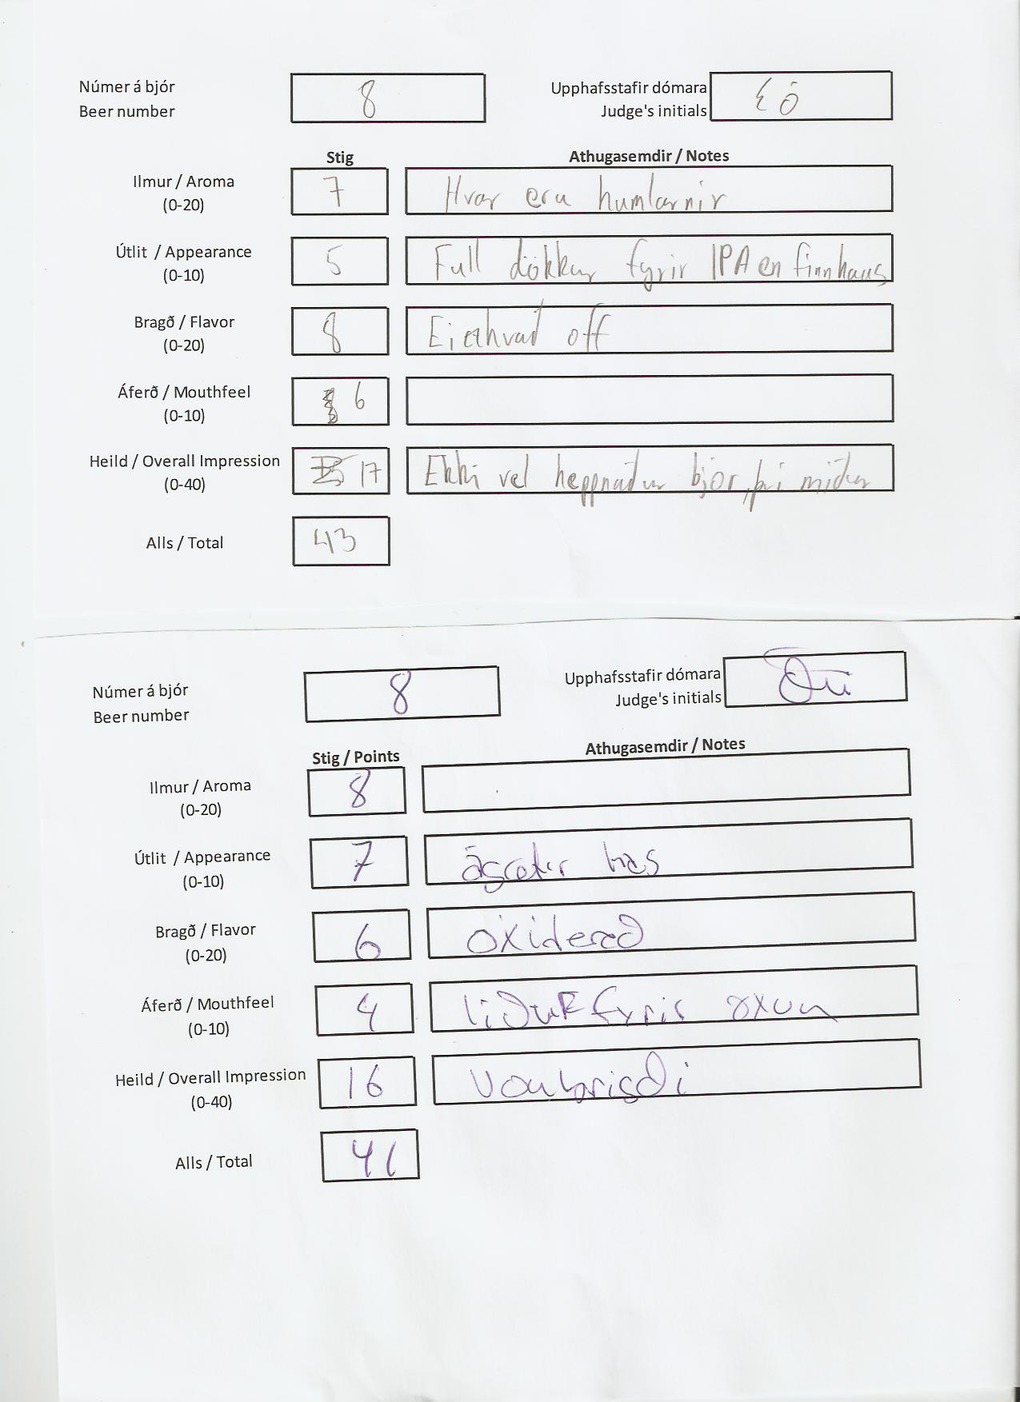 Númer á bjór
Beer number
8
Upphafsstafir dómara
Judge's initials
EÓ
Stig
Athugasemdir / Notes
Ilmur / Aroma
(0-20)
7
Hvar eru humlarnir
Útlit / Appearance
(0-10)
5
Full dökkur fyrir IPA en finn haus
Bragð / Flavor
(0-20)
8
Eitthvað off
Áferð / Mouthfeel
(0-10)
6
Heild / Overall Impression
(0-40)
17
Ekki vel heppnaður bjór, því miður
Alls / Total
43
Númer á bjór
Beer number
8
Upphafsstafir dómara
Judge's initials
Stig / Points
Athugasemdir / Notes
Ilmur / Aroma
(0-20)
8
Útlit / Appearance
(0-10)
7
ágætir has
Bragð / Flavor
(0-20)
6
oxiderað
Áferð / Mouthfeel
(0-10)
4
líður fyrir oxun
Heild / Overall Impression
(0-40)
16
Vonbrigði
Alls / Total
41